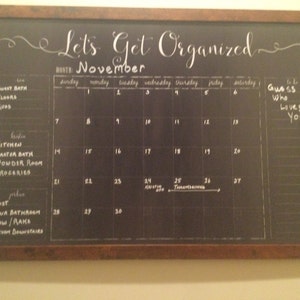 Let's Get Organized
MONTH: November
sunday monday tuesday wednesday thursday friday saturday
1 2 3 4 5 6
7 8 9 10 11 12 13
14 15 16 17 18 19 20
21 22 23 24 25 26 27
Thanksgiving
28 29 30
GUEST BATH
FLOORS
KITCHEN
MASTER BATH
POWDER ROOM
GROCERIES
BATHROOM
DOWNSTAIRS
Guess
Who
Loves
You